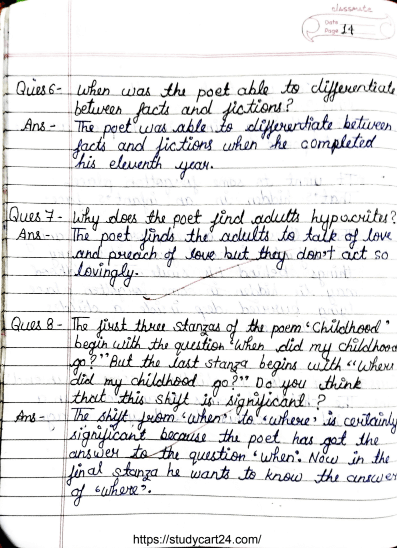 classmate
Date
Page 14
Ques 6- When was the poet able to differentiate
between facts and fictions?
Ans - The poet was able to differentiate between
facts and fictions when he completed
his eleventh year.
Ques 7- Why does the poet find adults hypocrites?
Ans - The poet finds the adults to talk of love
and preach of love but they don't act so
lovingly.
Ques 8- The first three stanzas of the poem 'Childhood'
begin with the question "When did my childhood
go?" But the last stanza begins with "Where
did my childhood go?" Do you think
that this shift is significant?
Ans- The shift from 'when' to 'where' is certainly
significant because the poet has got the
answer to the question 'when'. Now in the
final stanza he wants to know the answer
of 'where'.
https://studycart24.com/